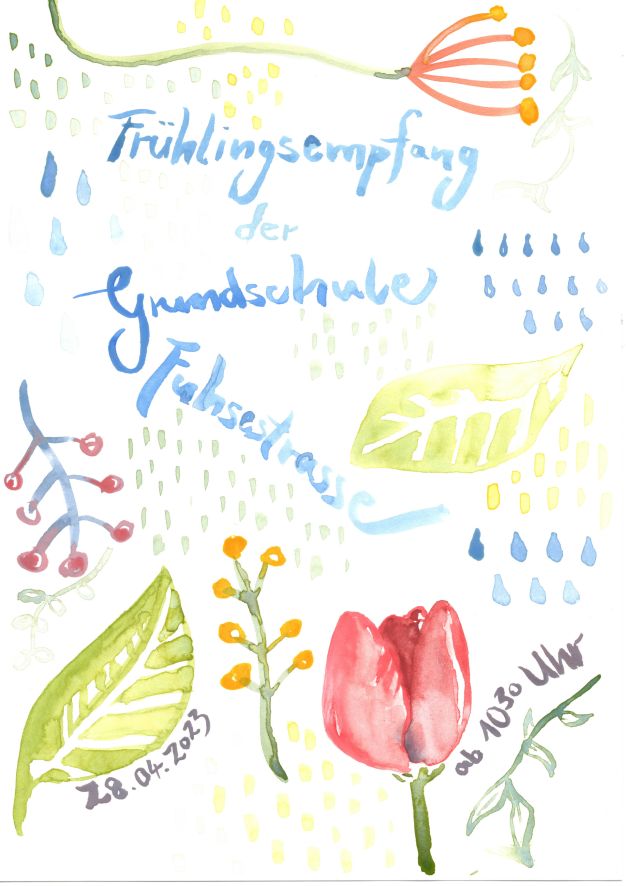 Frühlingsempfang
der
Grundschule
Fuhsestrasse
28.04.2023
ab 10³⁰ Uhr